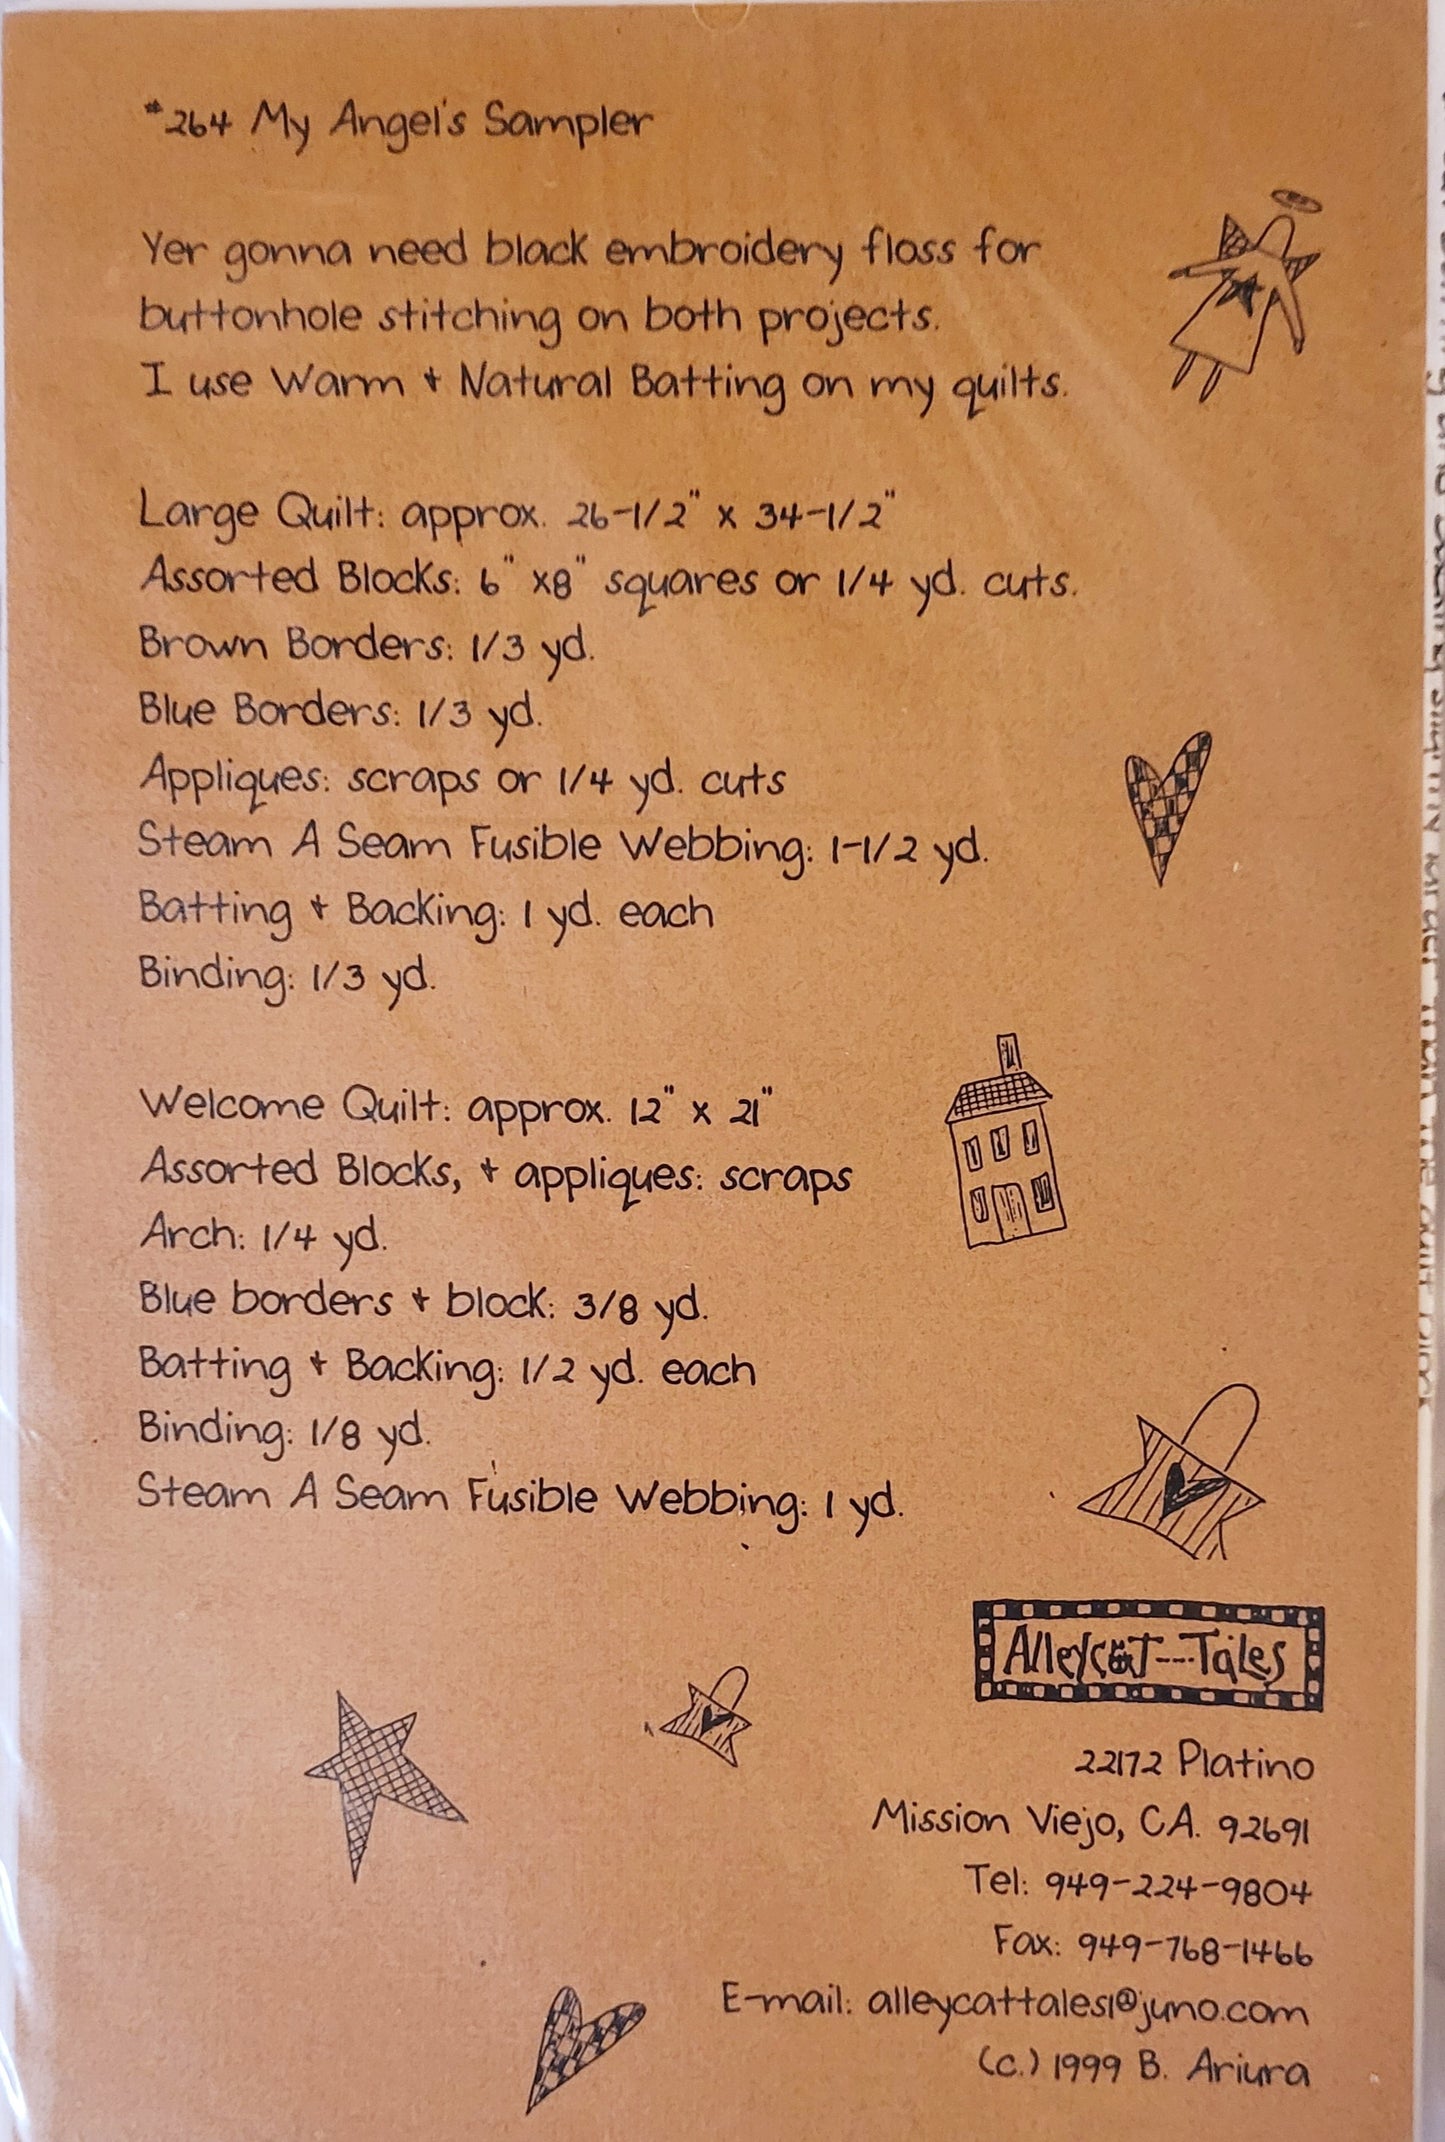 #264 My Angel's Sampler
Yer gonna need black embroidery floss for
buttonhole stitching on both projects.
I use Warm + Natural Batting on my quilts.
Large Quilt: approx. 26-1/2" x 34-1/2"
Assorted Blocks: 6" x8" squares or 1/4 yd. cuts.
Brown Borders: 1/3 yd.
Blue Borders: 1/3 yd.
Appliques: scraps or 1/4 yd. cuts
Steam A Seam Fusible Webbing: 1-1/2 yd.
Batting + Backing: 1 yd. each
Binding: 1/3 yd.
Welcome Quilt: approx. 12" x 21"
Assorted Blocks, + appliques: scraps
Arch: 1/4 yd.
Blue borders + block: 3/8 yd.
Batting + Backing: 1/2 yd. each
Binding: 1/8 yd.
Steam A Seam Fusible Webbing: 1 yd.
Alleycat---Tales
22172 Platino
Mission Viejo, CA. 92691
Tel: 949-224-9804
Fax: 949-768-1466
E-mail: alleycattales1@juno.com
(c.) 1999 B. Ariura